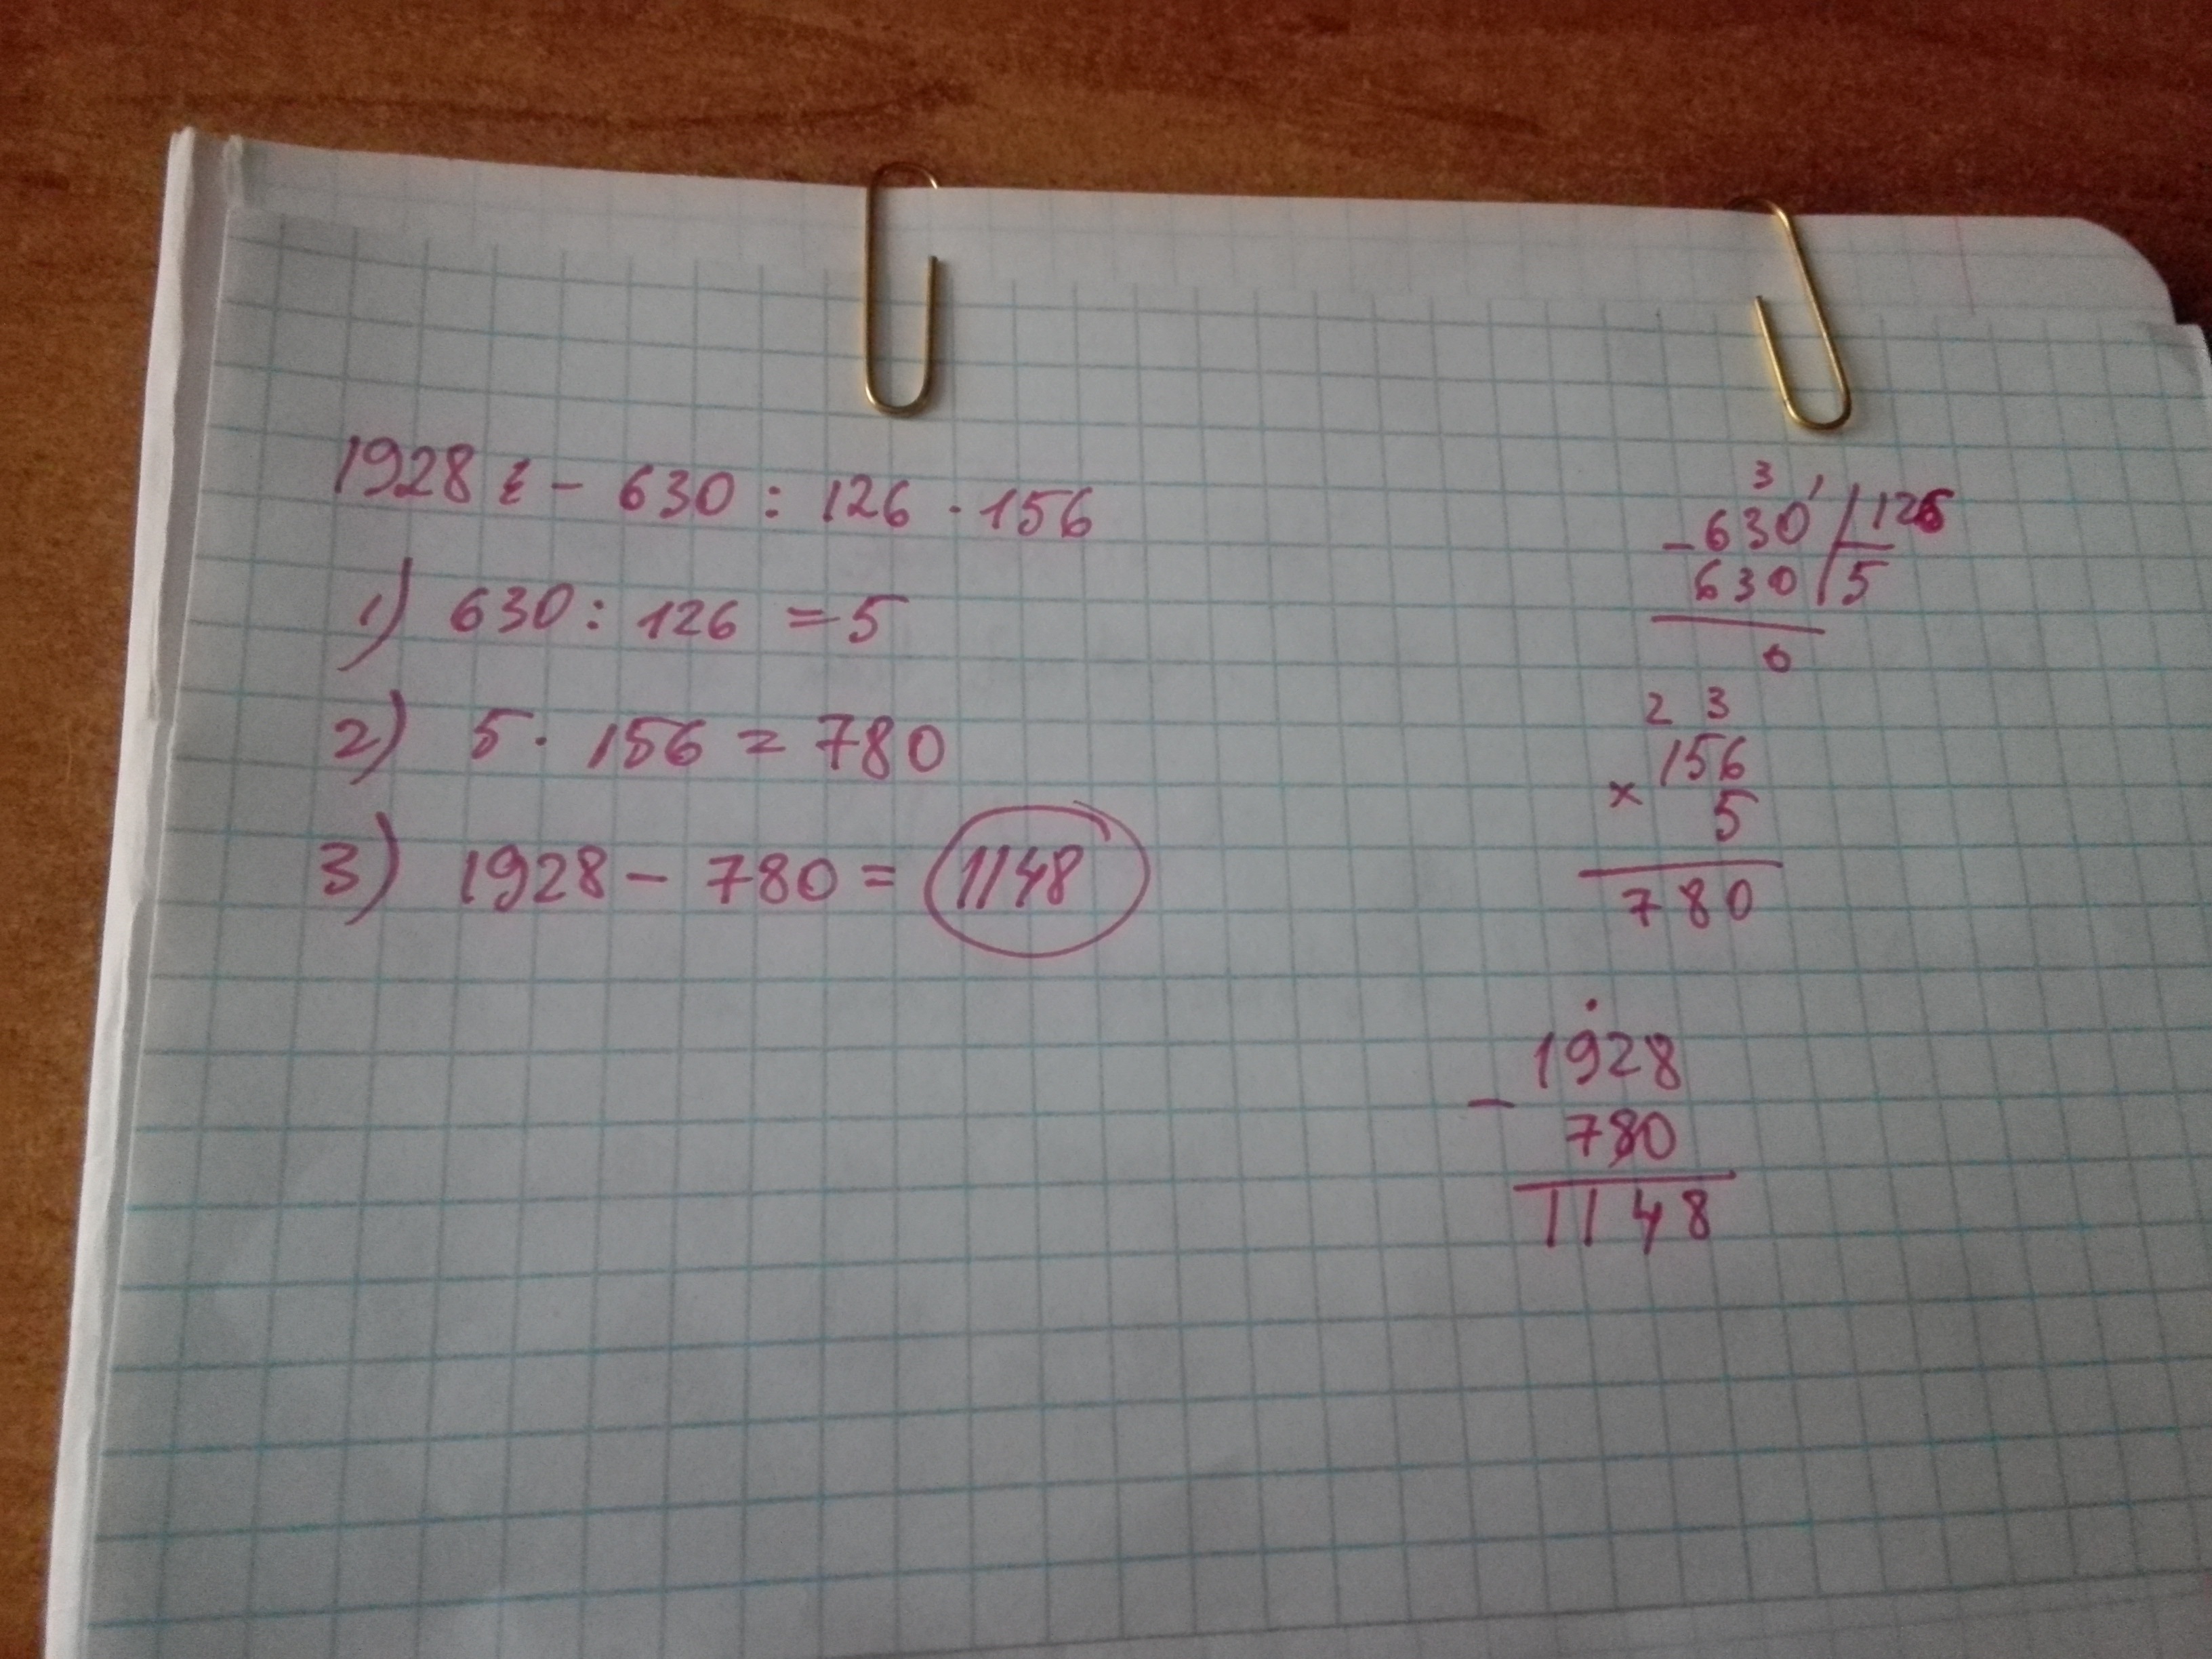 1928 - 630 : 126 · 156
1) 630 : 126 = 5
2) 5 · 156 = 780
3) 1928 - 780 = 1148
3 1
- 630 126
630 5
0
2 3
156
x 5
780
1928
- 780
1148